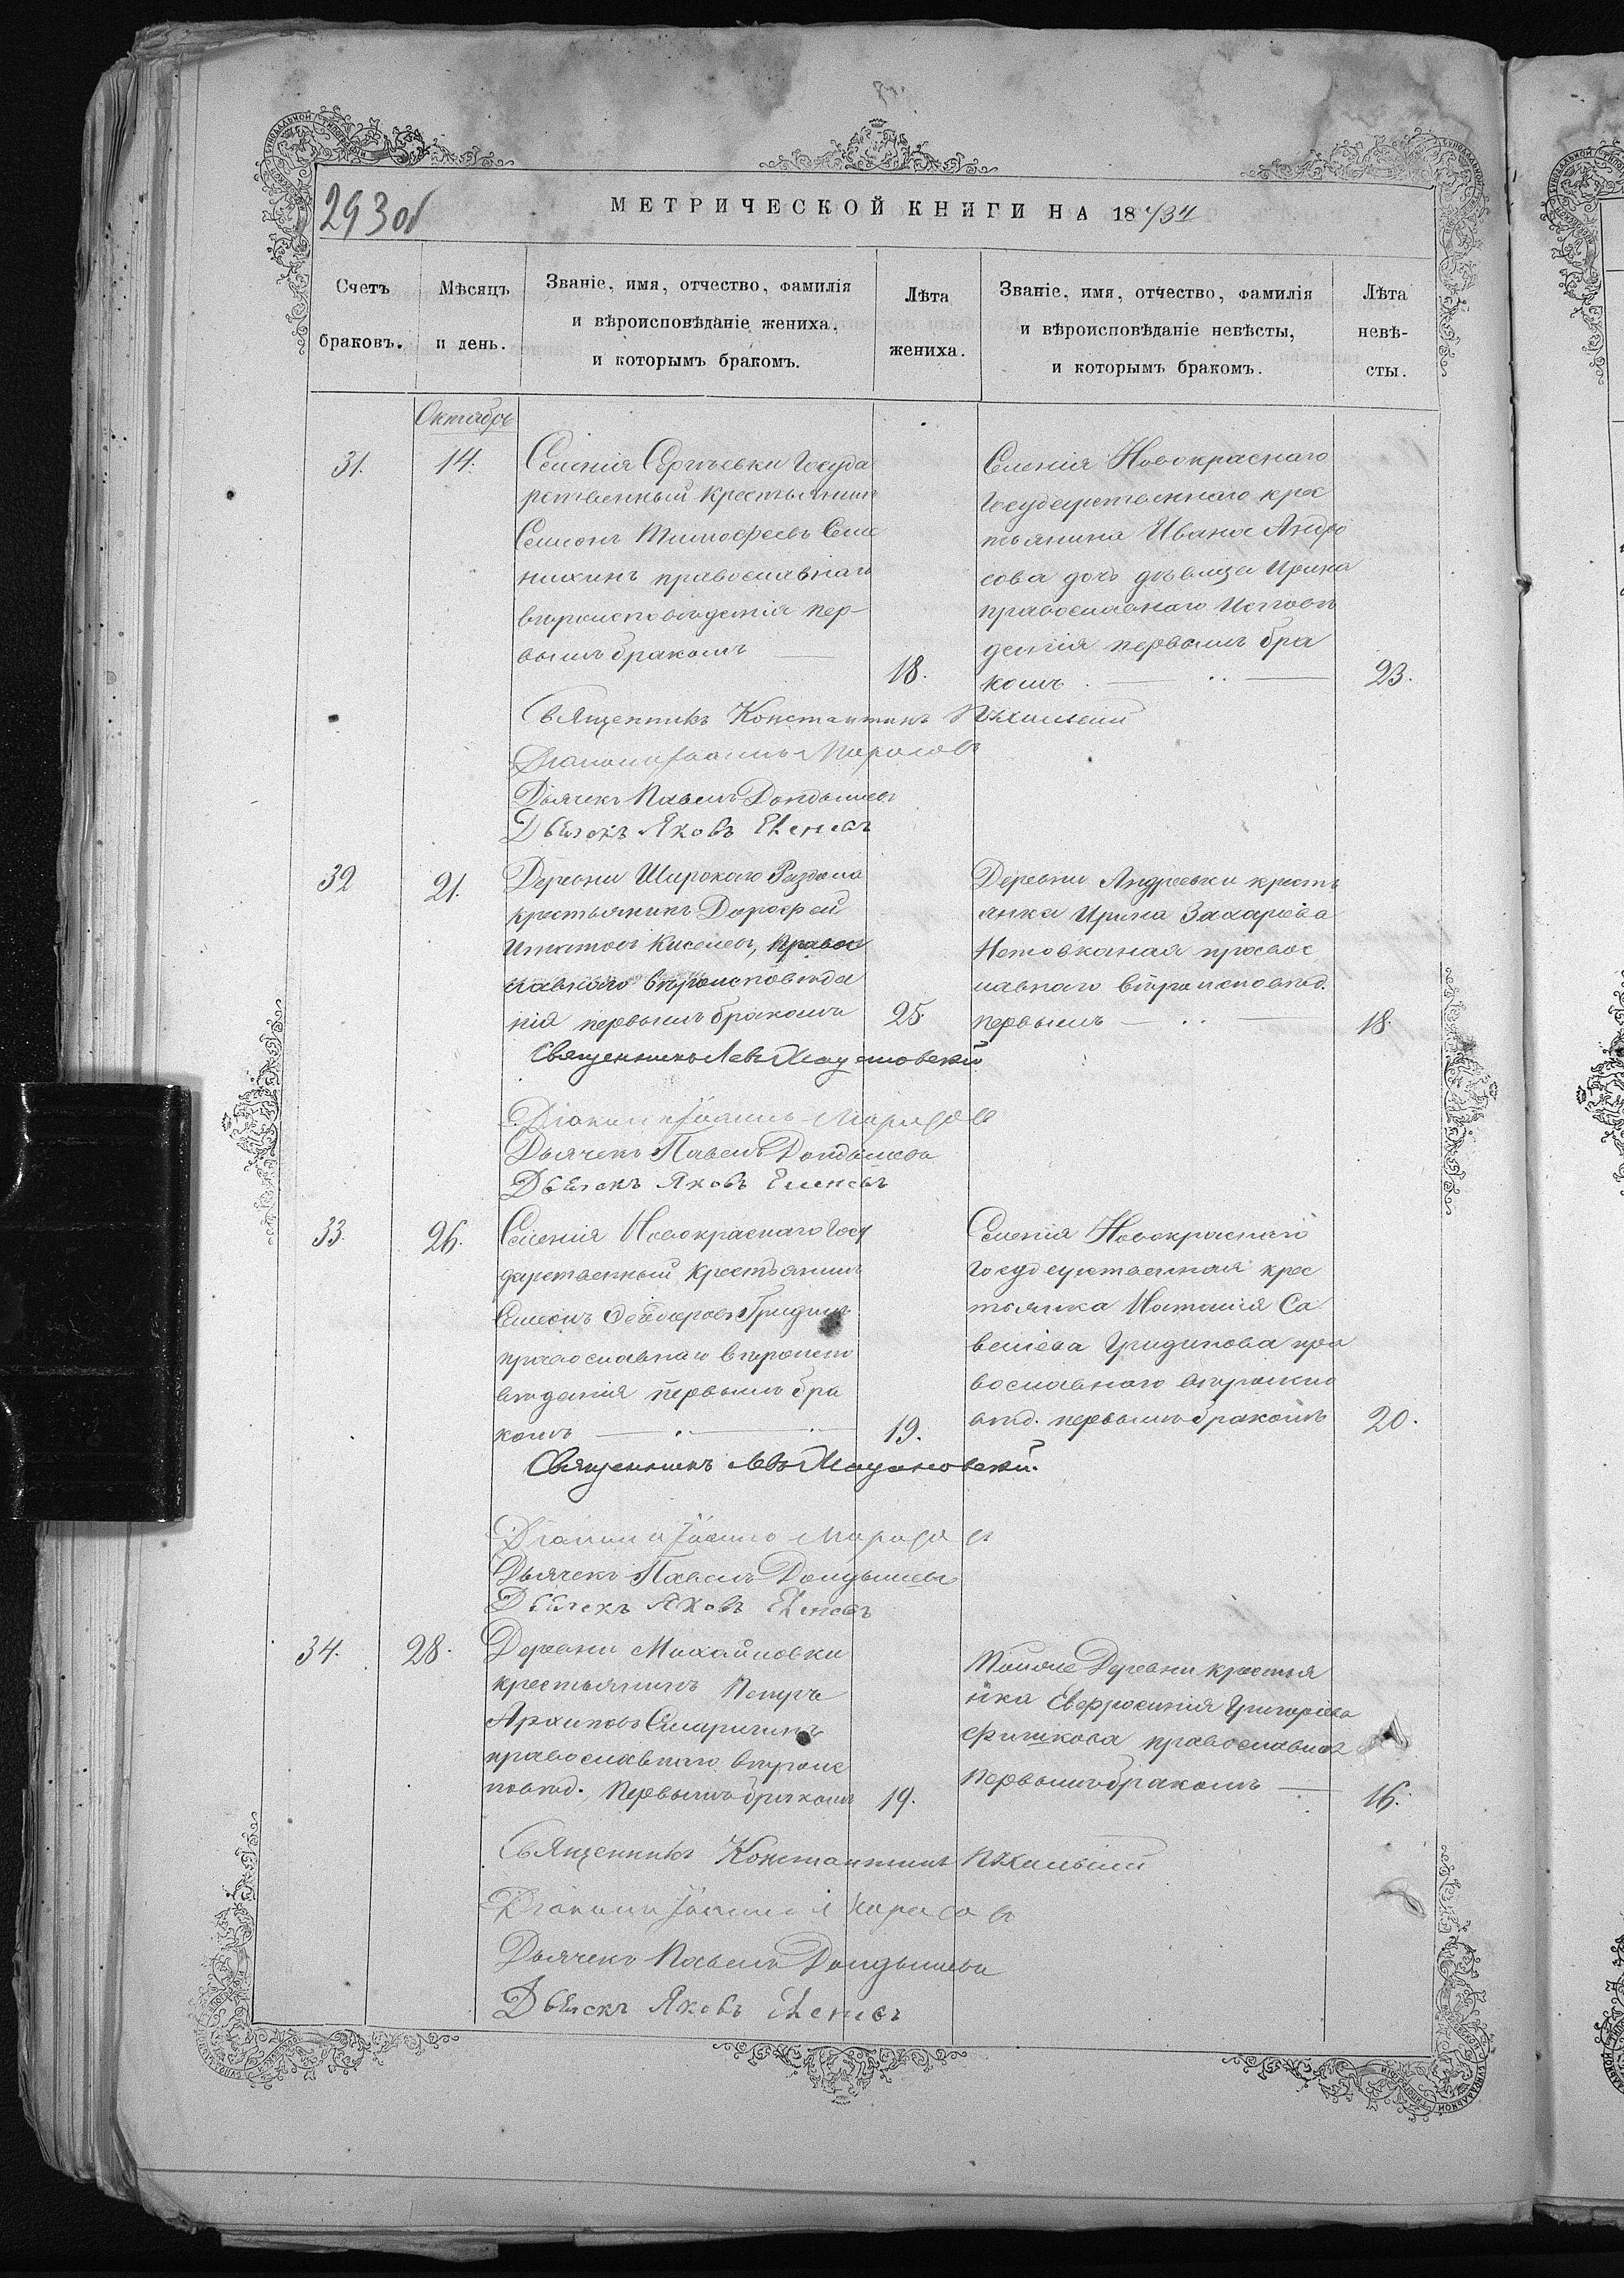 293 об
МЕТРИЧЕСКОЙ КНИГИ НА 18
Счетъ браковъ.
Мѣсяцъ и день.
Званіе, имя, отчество, фамилія
и вѣроисповѣданіе жениха,
и которымъ бракомъ.
Лѣта жениха.
Званіе, имя, отчество, фамилія
и вѣроисповѣданіе невѣсты,
и которымъ бракомъ.
Лѣта невѣ-
сты.
Октябрь
31.
14.
Селенія Сергѣевки Госуда
рственный крестьянинъ
Семіонъ Тимофеевъ
православнаго
вѣроисповѣданія пер-
вымъ бракомъ
18.
Селенія Новокраснаго
Государственнаго крес
тьянина Ивана
дочь дѣвица Ирина
православнаго исповѣ
данія первымъ бра
комъ
23.
Священникъ Константинъ
Діаконъ Іоаннъ
Дьячекъ Павелъ
Дьячекъ Яковъ
32
21.
Деревни Широкого Раздола
крестьянинъ Дорофей
Игнатовъ Киселевъ, правос
лавнаго вѣроисповѣда
нія первымъ бракомъ
25.
Деревни Андреевки кресть
янка Ирина Захаріева
правос
лавнаго вѣроисповѣд.
первымъ
18.
Священникъ Левъ
Діаконъ Іоаннъ
Дьячекъ Павелъ
Дьячекъ Яковъ
33.
26.
Селенія Новокраснаго Госу
дарственный крестьянинъ
Семіонъ Феодоровъ Гридинъ
православнаго вѣроиспо
вѣданія первымъ бра
комъ
19.
Селенія Новокраснаго
Государственная крес
тьянка Наталія Са
веліева Гридинова пра
вославнаго вѣроиспо
вѣд. первымъ бракомъ
20.
Священникъ Левъ
Діаконъ Іоаннъ
Дьячекъ Павелъ
Дьячекъ Яковъ
34.
28.
Деревни Михайловки
крестьянинъ Петръ
Архиповъ
православнаго вѣроис
повѣд. Первымъ бракомъ
19.
Тойже Деревни крестья
нка Евфросинія Григоріева
православнаго
первымъ бракомъ
16.
Священникъ Константинъ
Діаконъ Іоаннъ
Дьячекъ Павелъ
Дьячекъ Яковъ